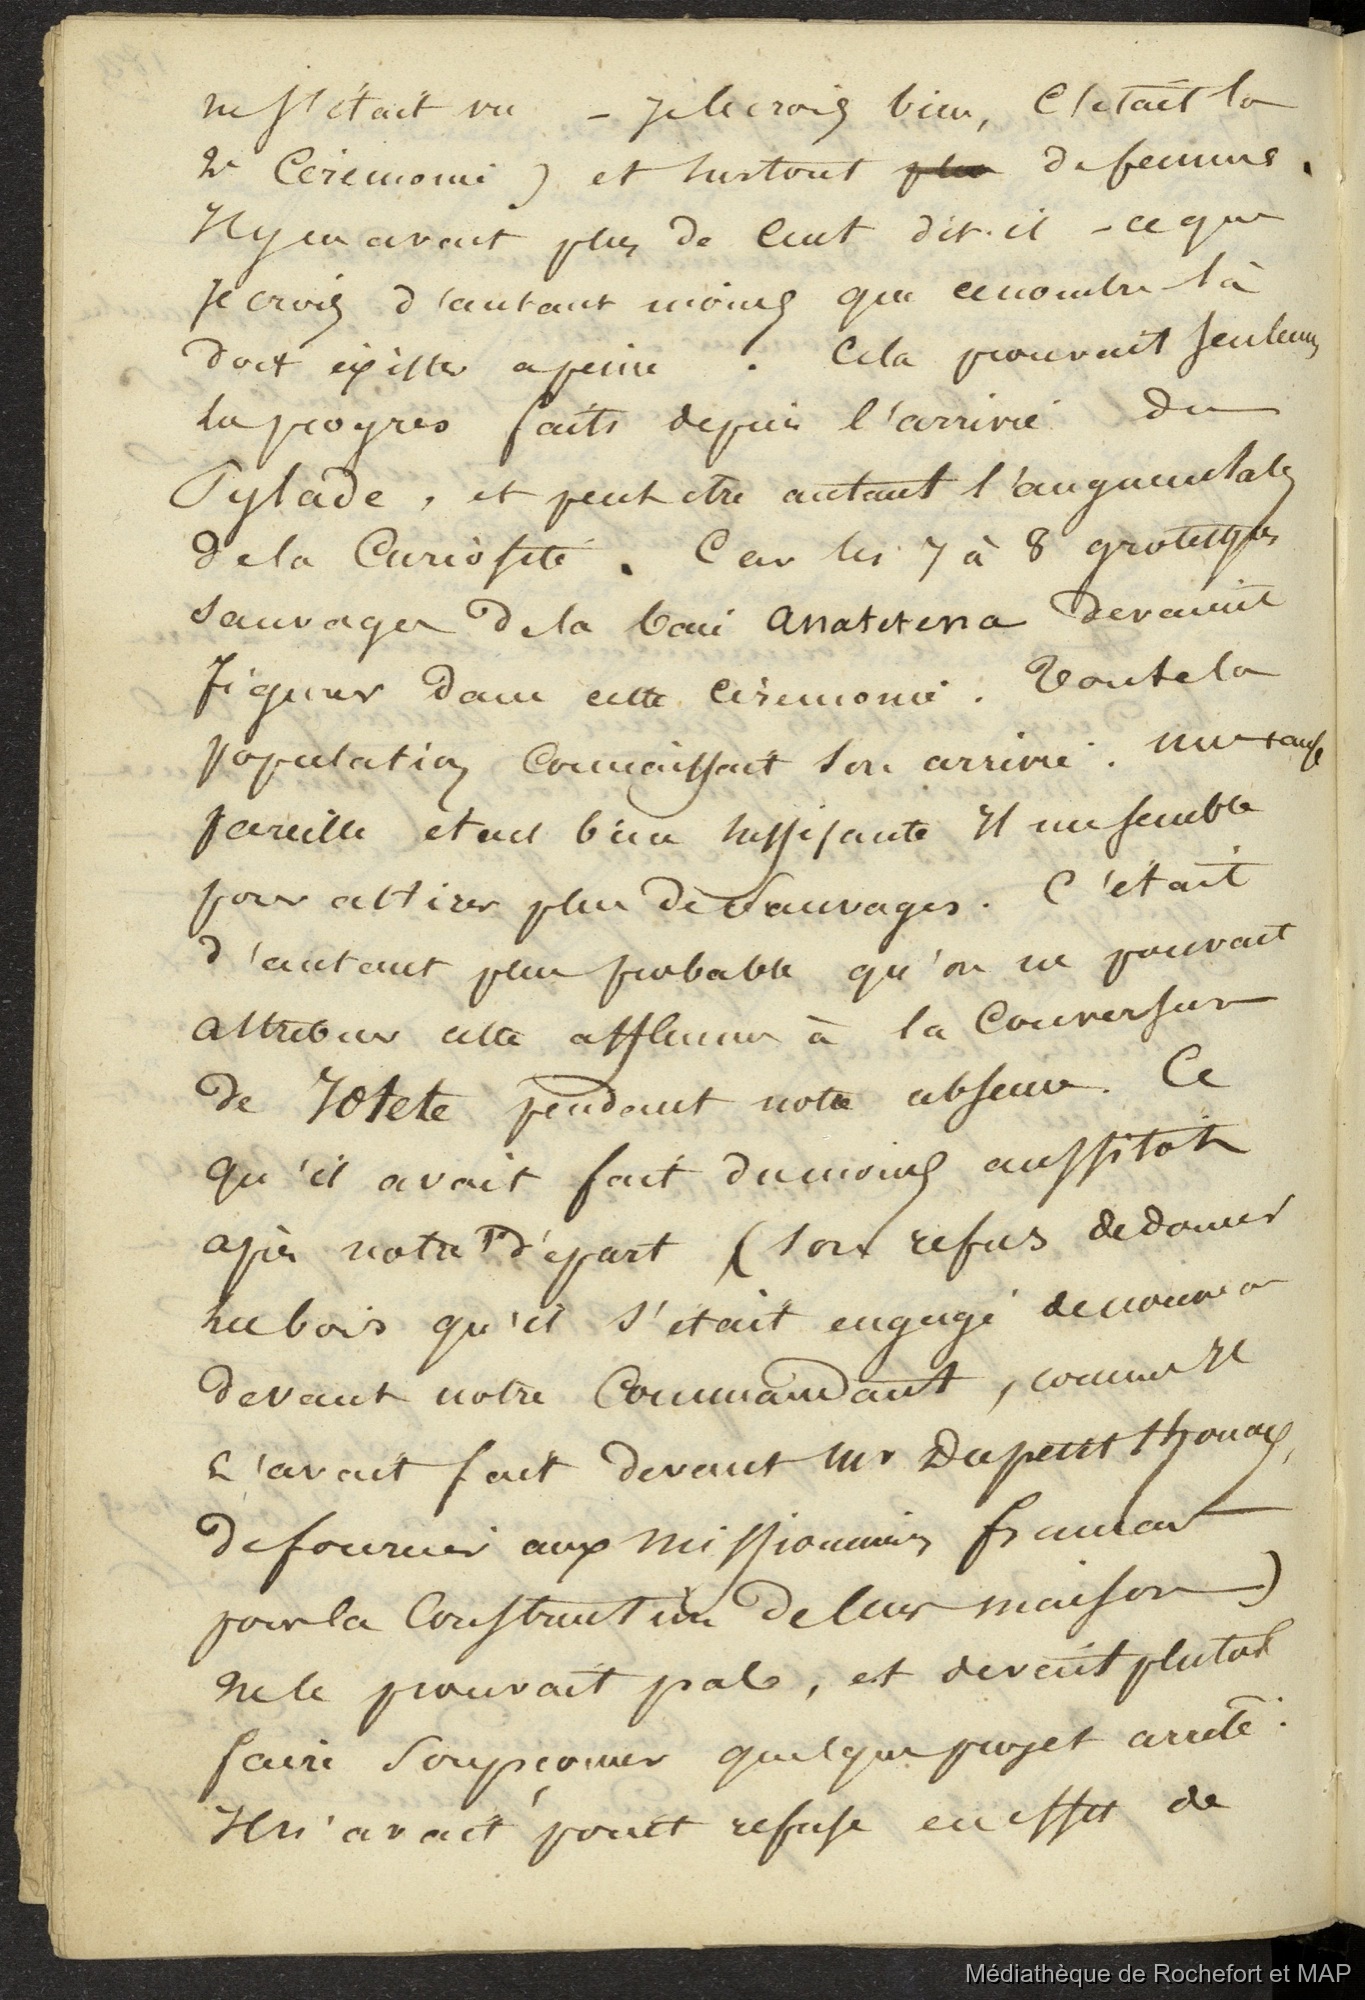 ne s'était vu - je le crois bien, c'était la
2e Cérémonie) et surtout plus de femmes.
Il y en avait plus de cent dit-il - ce que
je crois d'autant moins que ce nombre là
doit exister a peine. Cela prouvait seulemt
les progres faits depuis l'arrivée du
Pylade, et peut etre autant l'augmentatn
de la Curiosité. Car les 7 à 8 grotesques
sauvages de la baie anatetena devaient
figurer dans cette cérémonie. Toute la
population connaissait son arrivée. une cause
pareille etait bien suffisante il me semble
pour attirer plus de Sauvages. C'était
d'autant plus probable qu'on ne pouvait
attribuer cette affluence à la Conversion
de Iotete pendant notre absence. Ce
qu'il avait fait du moins aussitot
après notre 1er départ (son refus de donner
les bois qu'il s'était engagé de nouveau
devant notre Commandant, comme il
l'avait fait devant Mr Dupetit thouars,
de fournir aux missionnaires francais
pour la Construction de leur maison)
ne le prouvait pas, et devait plutot
faire soupçonner quelque projet arreté.
Il n'avait point refusé en effet de
Médiathèque de Rochefort et MAP